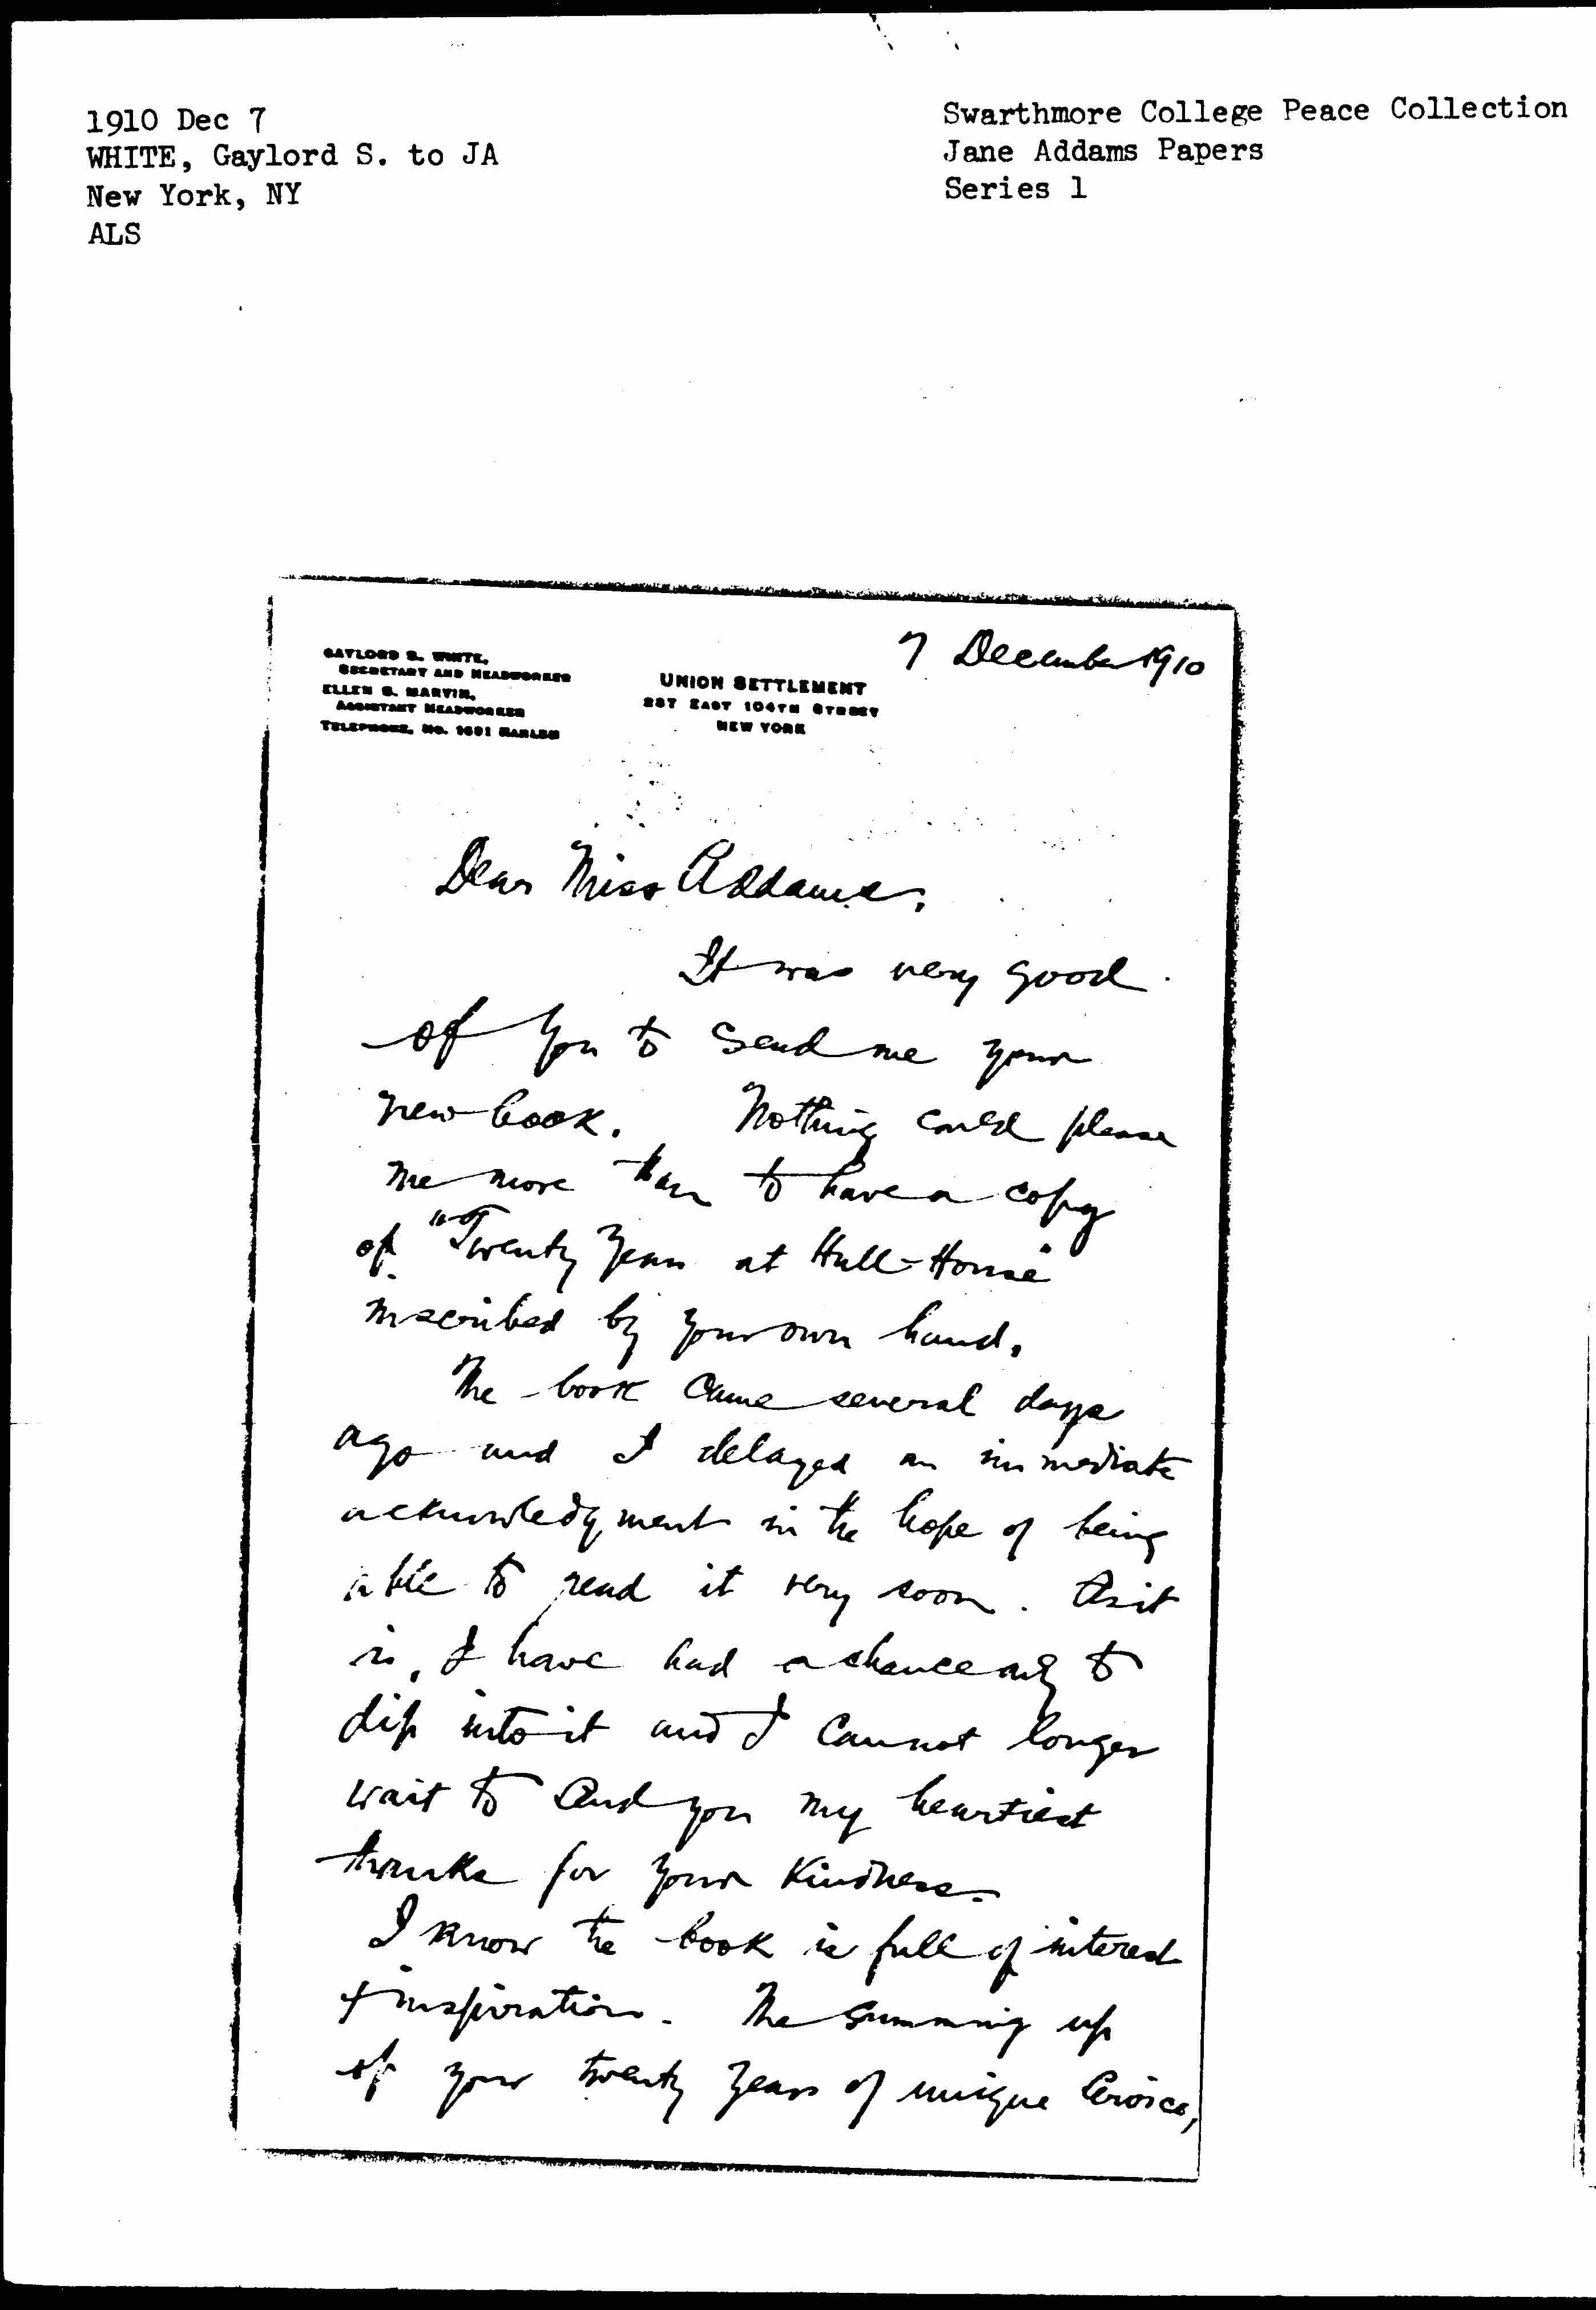 1910 Dec 7
WHITE, Gaylord S. to JA
New York, NY
ALS
Swarthmore College Peace Collection
Jane Addams Papers
Series 1
GAYLORD S. WHITE,
SECRETARY AND HEADWORKER
ELLEN S. MARVIN,
ASSISTANT HEADWORKER
TELEPHONE, NO. 1691 HARLEM
UNION SETTLEMENT
237 EAST 104TH STREET
NEW YORK
7 December 1910
Dear Miss Addams,
It was very good
of you to send me your
new book. Nothing could please
me more than to have a copy
of "Twenty Years at Hull-House"
inscribed by your own hand.
The book came several days
ago and I delayed an immediate
acknowledgment in the hope of being
able to read it very soon. As it
is, I have had a chance only to
dip into it and I cannot longer
wait to send you my heartiest
thanks for your kindness.
I know the book is full of interest
+ inspiration. The summing up
of your twenty years of unique service,